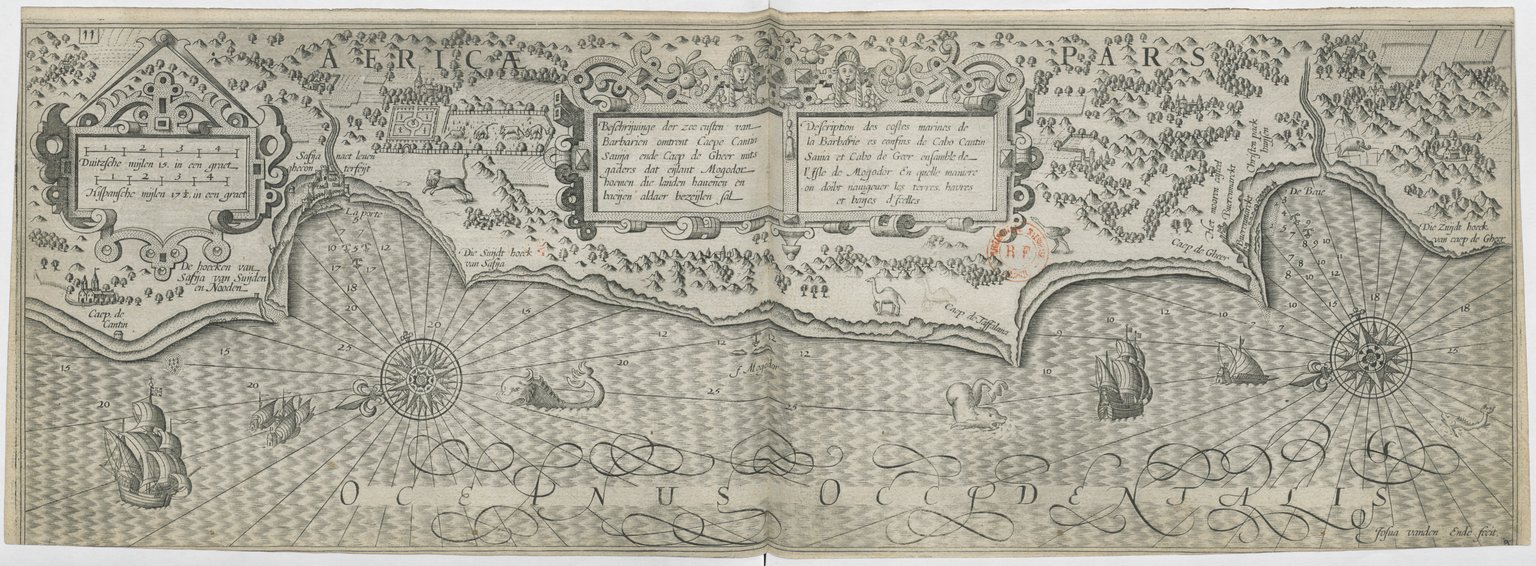 11
AFRICÆ PARS
1 2 3 4
Duitzsche mijlen 15. in een graet
1 2 3 4
Hispansche mijlen 17½. in een graet
Beschrijuinge der zee custen van
Barbarien omtrent Caepe Cantin
ende Caep de Gheer mits
gaders dat eijlant Mogodor
hoemen die landen hauenen en
baeijen aldaer bezeijlen sal
Description des costes marines de
la Barbarie es confins de Cabo Cantin
et Cabo de Geer ensamble de
l'Isle de Mogodor En quelle maniere
on doibt nauigeuer les terres, havres
et bayes d'icelles
Safija naer leuen
gheconterfeijt
La porte
De hoecken van
Safija van Suijden
en Nooden
Caep. de
Cantin
Die Suijdt hoeck
van Safija
R.F.
Caep d Taffalma
Caep de Gheer
Christen pack
huijsen
De Baie
Die Zuijdt hoeck
van caep de Gheer
J. Mogodor
15
15
20
20
25
20
25
25
12
12
12
10
9
10
12
10
18
25
OCEANUS OCCIDENTALIS
Josua vanden Ende fecit.